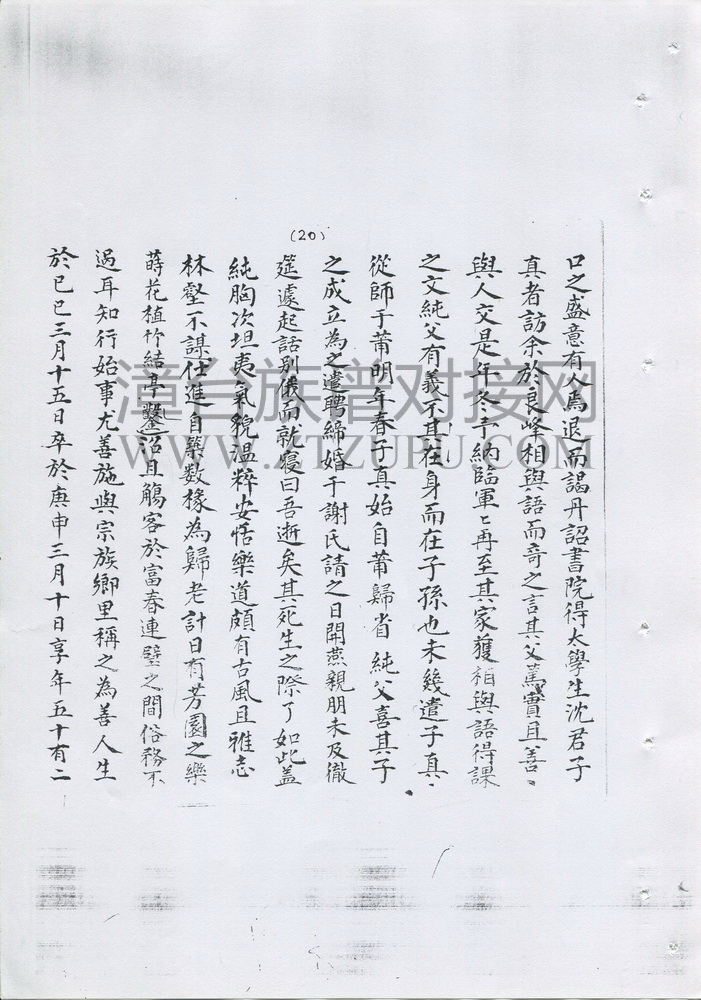 (20)
口之盛意有人焉退而謁丹詔書院得太學生沈君子
真者訪余於良峰相與語而奇之言其父篤實且善、
與人交是年冬予納臨軍ニ再至其家獲相與語得課
之文純父有義不其在身而在子孫也未幾遣子真、
從師于莆明年春子真始自莆歸省 純父喜其子
之成立為之遣聘締婚于謝氏請之日開燕親朋未及徹
筵遽起話別儀而就寢曰吾逝矣其死生之際了如此盖
純胸次坦夷氣貌溫粹安恬樂道頗有古風且雅志
林壑不謀仕進自築数椽為歸老計日有芳園之樂
蒔花植竹結亭鑿沼且觴客於富春連璧之間俗務不
過耳知行始事尤善施與宗族鄉里稱之為善人生
於已巳三月十五日卒於庚申三月十日享年五十有二
漳台族谱对接网
WWW.ZTZUPU.COM